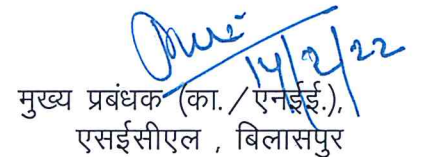 14/2/22
मुख्य प्रबंधक (का. / एनईई.),
एसईसीएल , बिलासपुर